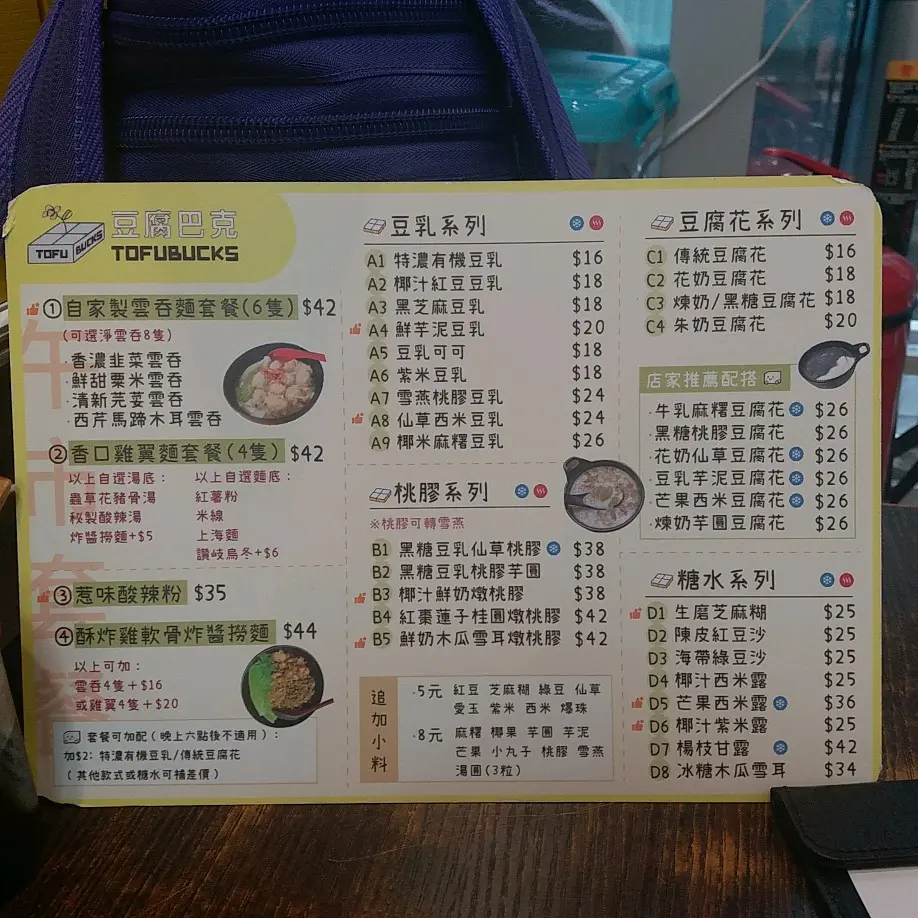 豆腐巴克
TOFU BUCKS
TOFUBUCKS
午市套餐
①自家製雲吞麵套餐(6隻) $42
(可選淨雲吞8隻)
·香濃韭菜雲吞
·鮮甜粟米雲吞
·清新芫荽雲吞
·西芹馬蹄木耳雲吞
②香口雞翼麵套餐(4隻) $42
以上自選湯底:
蟲草花豬骨湯
秘製酸辣湯
炸醬撈麵+$5
以上自選麵底:
紅薯粉
米線
上海麵
讚岐烏冬+$6
③惹味酸辣粉 $35
④酥炸雞軟骨炸醬撈麵 $44
以上可加:
雲吞4隻+$16
或雞翼4隻+$20
套餐可加配(晚上六點後不適用):
加$2: 特濃有機豆乳/傳統豆腐花
(其他款式或糖水可補差價)
豆乳系列
A1 特濃有機豆乳 $16
A2 椰汁紅豆豆乳 $18
A3 黑芝麻豆乳 $18
A4 鮮芋泥豆乳 $20
A5 豆乳可可 $18
A6 紫米豆乳 $18
A7 雪燕桃膠豆乳 $24
A8 仙草西米豆乳 $24
A9 椰米麻糬豆乳 $26
桃膠系列
※桃膠可轉雪燕
B1 黑糖豆乳仙草桃膠 $38
B2 黑糖豆乳桃膠芋圓 $38
B3 椰汁鮮奶燉桃膠 $38
B4 紅棗蓮子桂圓燉桃膠 $42
B5 鮮奶木瓜雪耳燉桃膠 $42
追加小料
·5元 紅豆 芝麻糊 綠豆 仙草
愛玉 紫米 西米 爆珠
·8元 麻糬 椰果 芋圓 芋泥
芒果 小丸子 桃膠 雪燕
湯圓(3粒)
豆腐花系列
C1 傳統豆腐花 $16
C2 花奶豆腐花 $18
C3 煉奶/黑糖豆腐花 $18
C4 朱奶豆腐花 $20
店家推薦配搭
·牛乳麻糬豆腐花 $26
·黑糖桃膠豆腐花 $26
·花奶仙草豆腐花 $26
·豆乳芋泥豆腐花 $26
·芒果西米豆腐花 $26
·煉奶芋圓豆腐花 $26
糖水系列
D1 生磨芝麻糊 $25
D2 陳皮紅豆沙 $25
D3 海帶綠豆沙 $25
D4 椰汁西米露 $25
D5 芒果西米露 $36
D6 椰汁紫米露 $25
D7 楊枝甘露 $42
D8 冰糖木瓜雪耳 $34